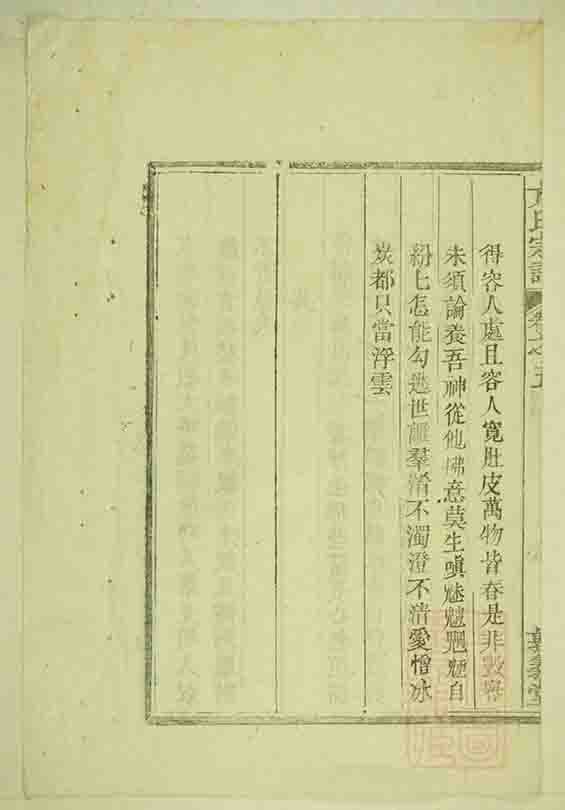 氏宗譜 卷之五
得容人處且容人寬肚皮萬物皆春是非毀譽
未須論養吾神從他拂意莫生嗔魅魑魍魎自
紛七怎能勾逃世離羣淆不濁澄不清愛憎冰
炭都只當浮雲